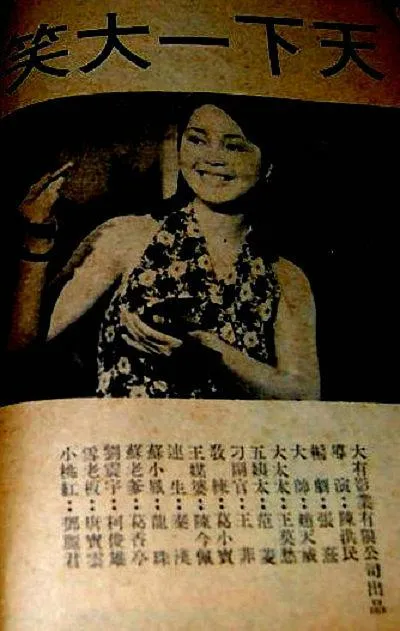 天下一大笑
大有影業有限公司出品
導演‥陳洪民
編劇‥張
大帥‥天威
大太太‥王莫愁
五姨太‥范
刁副官‥王菲
教棟‥葛小寶
王媒婆‥陳今佩
連生‥秦漢
蘇小鳳‥龍珠
蘇老爹‥葛香亭
劉震宇‥柯俊雄
雪老板‥唐寶雲
小桃紅‥鄧麗君